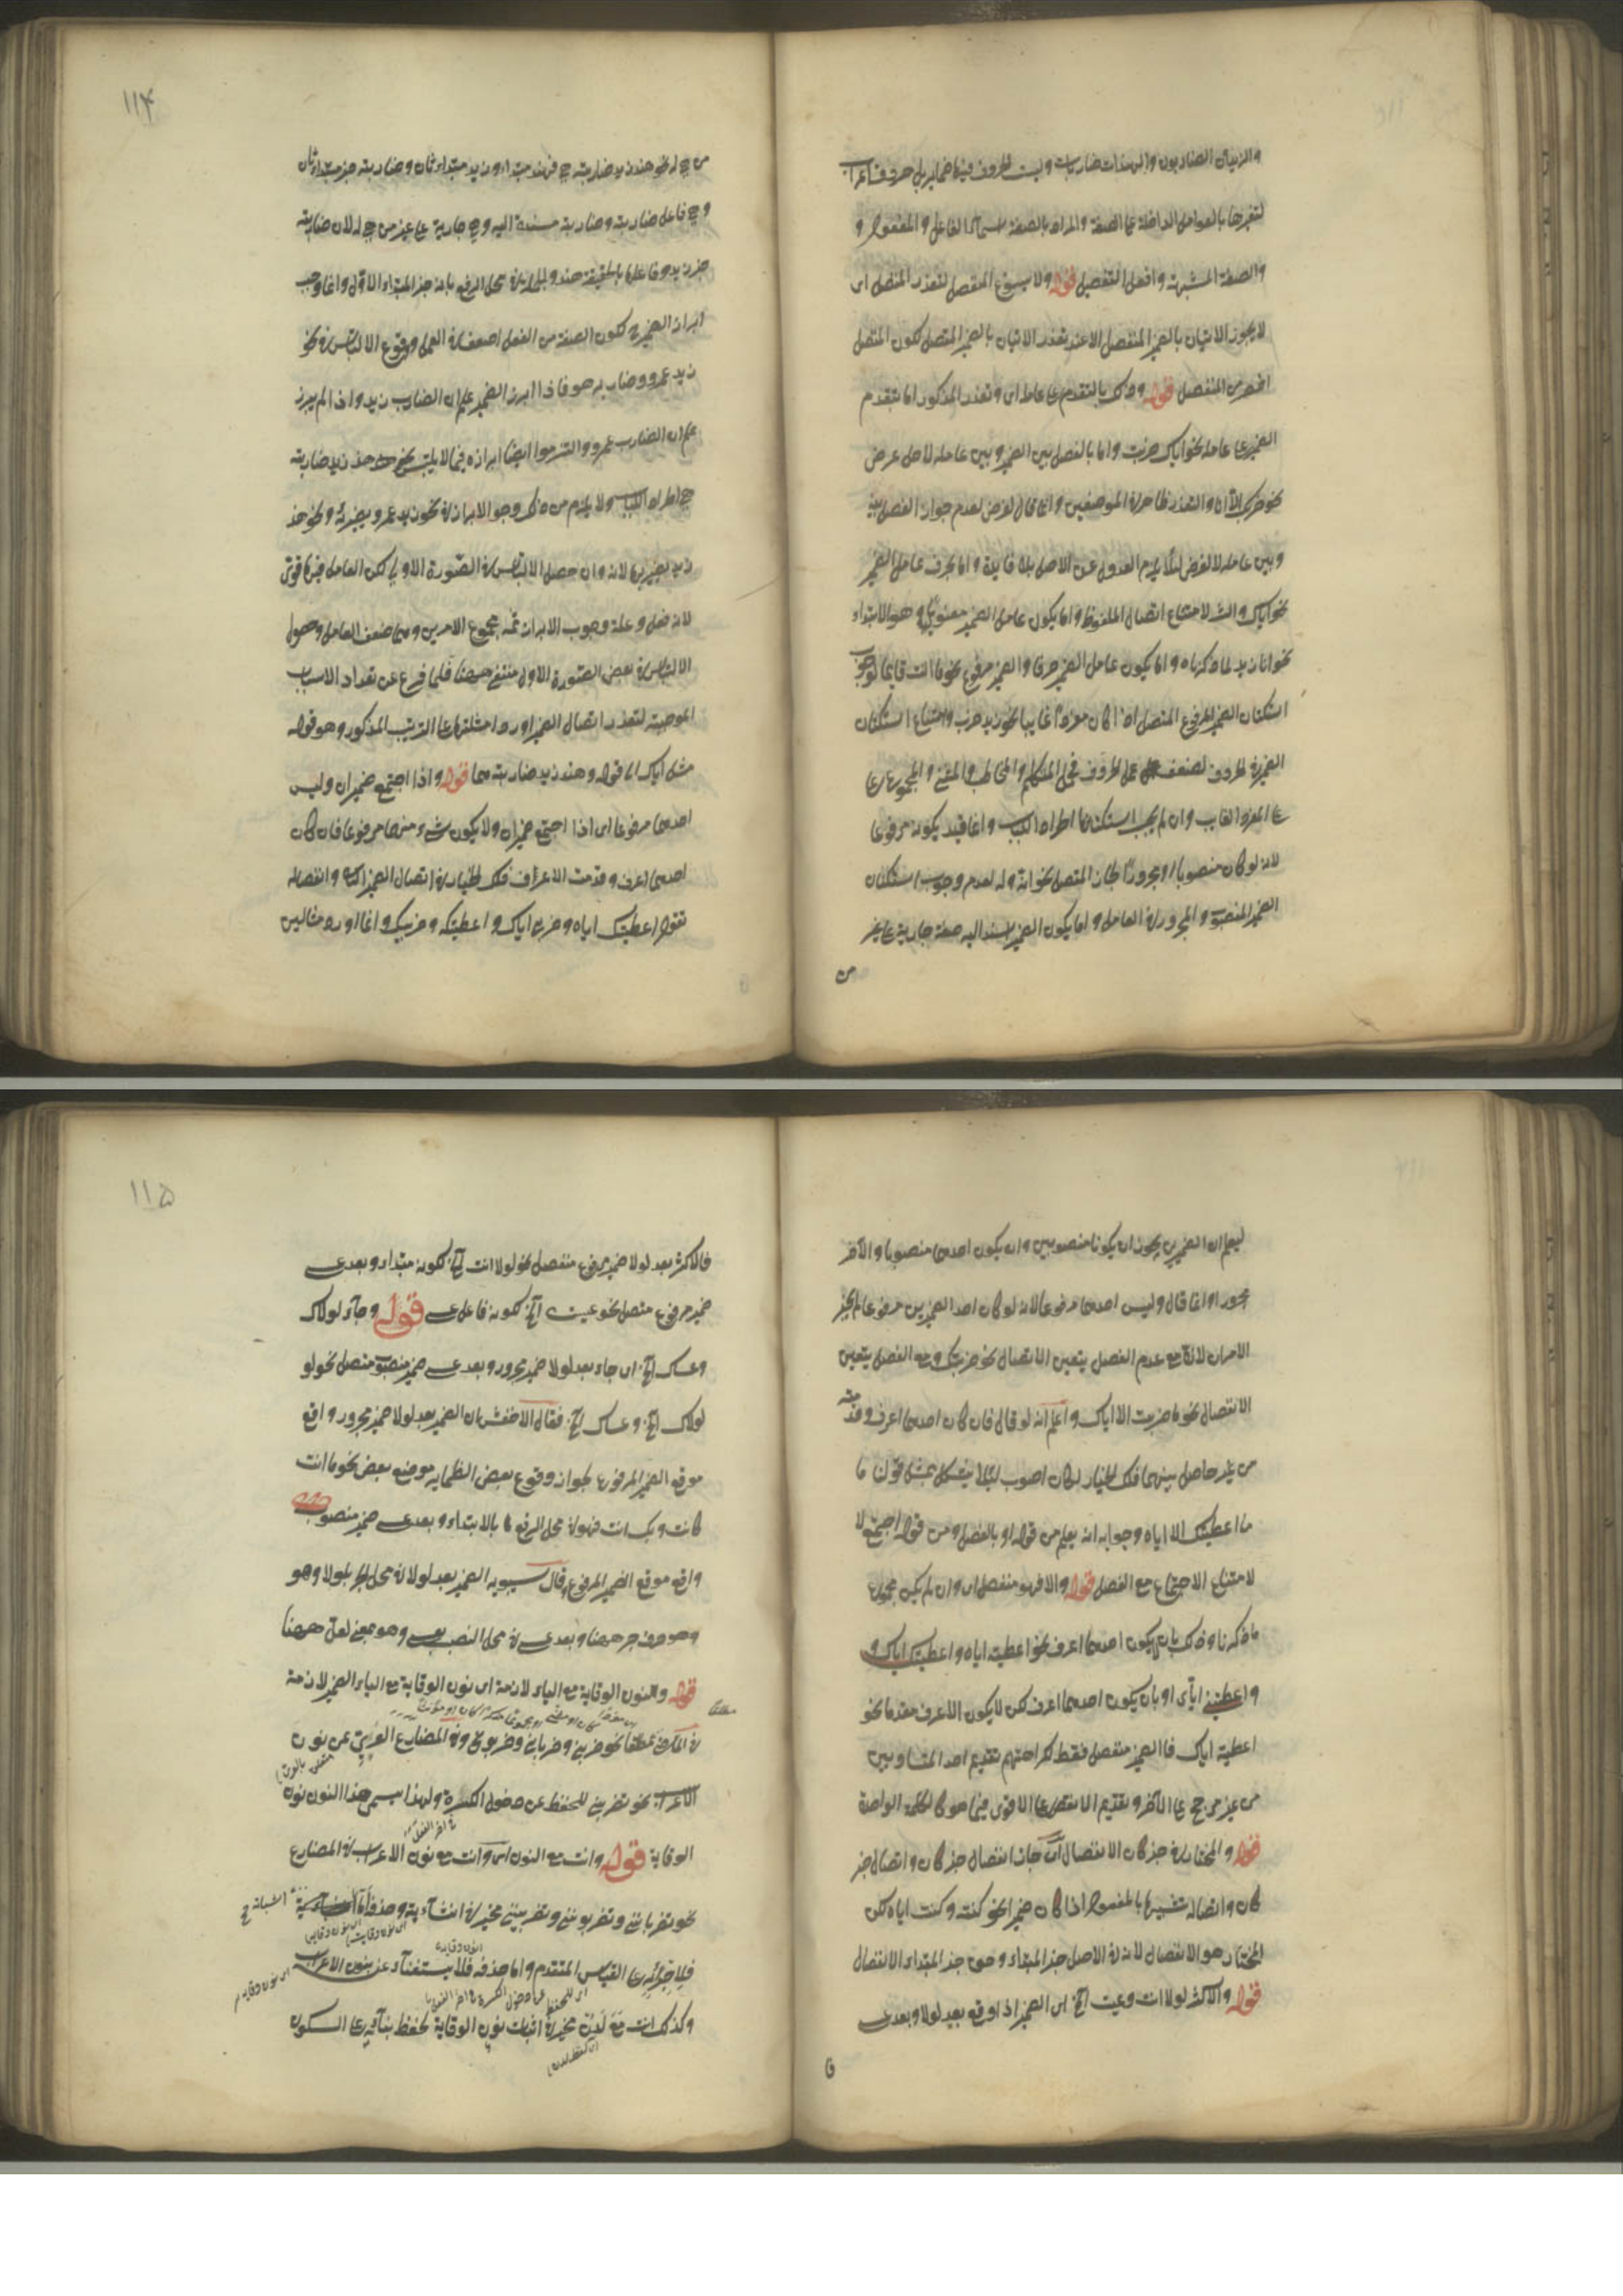 والزيدان الضاربون والهندات ضاربات وليست الحروف فيها ضماير بل حروف اعراب
لتغيرها بالعوامل الداخلة على الصفة والمراد بالصفة اسما الفاعل والمفعول و
والصفة المشبهة وافعل التفضيل قوله ولا يسوغ المنفصل لتعذر المتصل اى
لا يجوز الاتيان بالضمير المنفصل الا عند تعذر الاتيان بالضمير المتصل لكون المتصل
اخصر من المنفصل قوله وذلك بالتقدم على عامله اى وتعذر المذكور اما بتقدم
الضمير على عامله نحو اياك ضربت واما بالفصل بين الضمير وبين عامله لاجل غرض
نحو ضربك الا انا والتعذر ظاهر فى الموضعين وانما قال لغرض لعدم جواز الفصل بينه
وبين عامله لا لغرض لئلا يلزم العدول عن الاصل بلا فايدة واما بحذف عامل الضمير
نحو اياك والشر لامتناع اتصال الملفوظ واما يكون عامل الضمير معنويا وهو الابتداء
نحو انا زيد لما ذكرناه واما يكون عامل الضمير حرفا والضمير مرفوع نحو ما انت قايما لوجوب
استكنان الضمير المرفوع المتصل اذا كان مفردا غايبا نحو زيد ضرب وامتناع استكنان
الضمير فى الحروف لضعف عمل الحروف فحمل المتكلم والمخاطب والمثنى والمجموع على
على المفرد الغايب وان لم يجب استكنانها اطرادا للباب وانما قيد بكونه مرفوعا
لانه لو كان منصوبا او مجرورا لجاز المتصل نحو انه وله لعدم وجوب استكنان
الضمير المنصوب والمجرور فى العامل واما يكون الضمير اسند اليه صفة جارية على غير
من
١١٤
من هى له نحو هند زيد ضاربته هى فهند مبتداء وزيد مبتداء ثان وضاربته خبر مبتداء ثان
وهى فاعل ضاربته وضاربته مسندة اليه وهى جارية على غير من هى له لان ضاربته
خبر زيد وفاعلها بالحقيقة هند والجملة فى محل الرفع بانه خبر المبتداء الاول وانما وجب
ابراز الضمير لكون الصفة من الفعل اضعف فى العمل ووقوع الالتباس فى نحو
زيد عمرو ضاربه هو فاذا ابرز الضمير علم ان الضارب زيد واذا لم يبرز
علم ان الضارب عمرو والتزموا ايضا ابرازه فيما لا يلتبس نحو هند زيد ضاربته
هى اطرادا للباب ولا يلزم من ذلك وجوب الابراز فى نحو زيد عمرو يضربه ونحو هند
زيد يضربها لانه وان حصل الالتباس فى الصورة الاولى لكن العامل فيها قوى
لانه فعل وعلة وجوب الابراز ثمة مجموع الامرين وهما ضعف العامل وحصول
الالتباس فى بعض الصورة الاول منتفى ههنا فلما فرغ عن تعداد الاسباب
الموجبة لتعذر اتصال الضمير اورد امثلتها على الترتيب المذكور وهو قوله
مثل اياك الى قوله وهند زيد ضاربته هى قوله واذا اجتمع ضميران وليس
احدهما مرفوعا اى اذا اجتمع ضميران ولا يكون شىء منهما مرفوعا فان كان
احدهما اعرف وقدمت الاعراف فلك الخيار فى اتصال الضمير الثانى وانفصاله
تقول اعطيتك اياه وضربى اياك واعطيتكه وضربيك وانما اورد مثالين
ليعلم ان الضميرين يجوز ان يكونا منصوبين وان يكون احدهما منصوبا والآخر
مجرورا وانما قال وليس احدهما مرفوعا لانه لو كان احد الضميرين مرفوعا لم يجز
الامران لانه مع عدم الفصل يتعين الاتصال نحو ضربتك ومع الفصل يتعين
الانفصال نحو ما ضربت الا اياك واعلم انه لو قال فان كان احدهما اعرف وقدمته
من غير حاصل بينهما فلك الخيار لكان اصوب لئلا يشكل بمثل قولنا ما
ما اعطيتك الا اياه وجوابه انه يعلم من قوله او بالفصل ومن قوله اجتمع لا
لامتناع الاجتماع مع الفصل قوله والا فهو منفصل اى وان لم يكن مجموع
ما ذكرنا وذلك بان لا يكون احدهما اعرف نحو اعطيته اياه واعطيتك اياك و
واعطيتنى اياى او بان يكون احدهما اعرف لكن لا يكون الاعرف مقدما نحو
اعطيته اياك فالضمير منفصل فقط لكراهتهم تقديم احد المتساويين
من غير مرجح على الآخر وتقديم الانقص على الاقوى فيما هو كالكلمة الواحدة
قوله والمختار فى خبر كان الانفصال اى جاز انفصال خبر كان واتصال خبر
كان واتصاله تشبيها بالمفعول اذا كان ضميرا نحو كنته وكنت اياه لكن
المختار هو الانفصال لانه فى الاصل خبر المبتداء وحق خبر المبتداء الانفصال
قوله والاكثر لولا انت وعسيت آلخ اى الضمير اذا وقع بعد لولا وبعد عسى
فا
١١٥
فالاكثر بعد لولا ضمير مرفوع منفصل نحو لولا انت آلخ لكونه مبتداء وبعد عسى
ضمير مرفوع متصل نحو عسيت آلخ لكونه فاعل عسى قوله وجاء لولاك
وعساك آلخ اى جاء بعد لولا ضمير مجرور وبعد عسى ضمير منصوب متصل نحو لو
لولاك آلخ وعساك آلخ فقال الاخفش ان الضمير بعد لولا ضمير مجرور واقع
موقع الضمير المرفوع لجواز وقوع بعض الضماير موضع بعض نحو ما انت
كانت وبك انت فهو فى محل الرفع بالابتداء وبعد عسى ضمير منصوب
واقع موقع الضمير المرفوع وقال سيبويه الضمير بعد لولا فى محل الجر بلولا وهو
وهو حرف جر ههنا وبعد عسى فى محل النصب بعسى وهو بمعنى لعل ههنا
قوله والنون الوقاية مع الياء لازمة اى نون الوقاية مع الياء الضمير لازمة
فى الماضى مطلقا نحو ضربنى وضربانى وضربونى وفى المضارع العرى عن نون
الاعراب نحو تضربنى للحفظ عن دخول الكسرة ولهذا يسمى هذا النون نون
الوقاية قوله وانت مع النون اى وانت مع نون الاعراب فى المضارع
نحو تضرباننى وتضربوننى وتضربيننى مخير فى اثباته وحذفه اما
فلاجرائه على القياس المتقدم واما حذفه فلاستغناء عنه بنون الاعراب
وكذلك انت مع لدن مخير فى اثبات نون الوقاية لحفظ بنائه على السكون